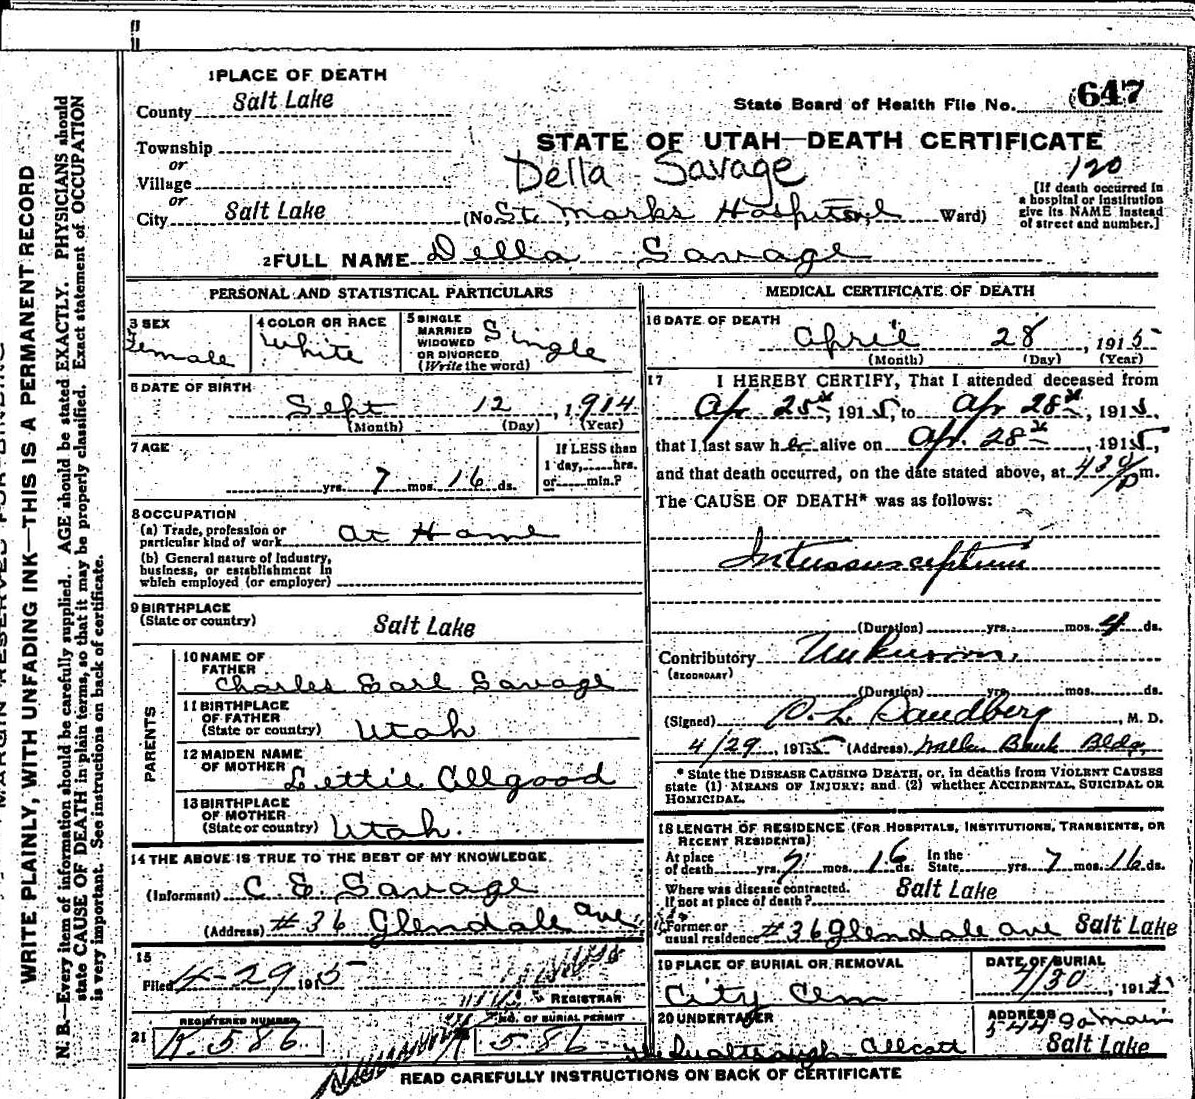 MARGIN RESERVED FOR BINDING
WRITE PLAINLY, WITH UNFADING INK—THIS IS A PERMANENT RECORD
N. B.—Every item of information should be carefully supplied. AGE should be stated EXACTLY. PHYSICIANS should
state CAUSE OF DEATH in plain terms, so that it may be properly classified. Exact statement of OCCUPATION
is very important. See instructions on back of certificate.
1 PLACE OF DEATH
County Salt Lake
Township
or
Village
or
City Salt Lake
State Board of Health File No. 647
STATE OF UTAH—DEATH CERTIFICATE
Della Savage
120
(No. St. Marks Hospital Ward)
[If death occurred in
a hospital or institution
give its NAME instead
of street and number.]
2 FULL NAME Della Savage
PERSONAL AND STATISTICAL PARTICULARS
3 SEX
Female
4 COLOR OR RACE
White
5 SINGLE
MARRIED
WIDOWED
OR DIVORCED
(Write the word)
Single
6 DATE OF BIRTH
Sept 12, 1914
(Month) (Day) (Year)
7 AGE
yrs. 7 mos. 16 ds.
If LESS than
1 day, hrs.
or min.?
8 OCCUPATION
(a) Trade, profession or
particular kind of work At Home
(b) General nature of industry,
business, or establishment in
which employed (or employer)
9 BIRTHPLACE
(State or country) Salt Lake
PARENTS
10 NAME OF
FATHER
Charles Earl Savage
11 BIRTHPLACE
OF FATHER
(State or country) Utah
12 MAIDEN NAME
OF MOTHER
Lettie Allgood
13 BIRTHPLACE
OF MOTHER
(State or country) Utah.
14 THE ABOVE IS TRUE TO THE BEST OF MY KNOWLEDGE
(Informant) C. E. Savage
(Address) #36 Glendale ave
15
Filed 4-29 1915
REGISTRAR
21
REGISTERED NUMBER
K. 586.
NO. OF BURIAL PERMIT
586
MEDICAL CERTIFICATE OF DEATH
16 DATE OF DEATH
April 28, 1915
(Month) (Day) (Year)
17 I HEREBY CERTIFY, That I attended deceased from
Apr 25th, 1915, to Apr 28th, 1915,
that I last saw her alive on Apr. 28th, 1915,
and that death occurred, on the date stated above, at 430 P m.
The CAUSE OF DEATH* was as follows:
Intussusception
(Duration) yrs. mos. 4 ds.
Contributory Unknown.
(SECONDARY)
(Duration) yrs. mos. ds.
(Signed) Sandberg, M. D.
4/29, 1915 (Address) Walker Bank Bldg.
* State the DISEASE CAUSING DEATH, or, in deaths from VIOLENT CAUSES
state (1) MEANS OF INJURY; and (2) whether ACCIDENTAL, SUICIDAL OR
HOMICIDAL.
18 LENGTH OF RESIDENCE (FOR HOSPITALS, INSTITUTIONS, TRANSIENTS, OR
RECENT RESIDENTS)
At place
of death yrs. 7 mos. 16 ds. In the
State yrs. 7 mos. 16 ds.
Where was disease contracted.
If not at place of death? Salt Lake
Former or
usual residence #36 Glendale ave Salt Lake
19 PLACE OF BURIAL OR REMOVAL
City Cem
DATE OF BURIAL
4/30, 1915
20 UNDERTAKER
Allcott
ADDRESS
544 So main
Salt Lake
READ CAREFULLY INSTRUCTIONS ON BACK OF CERTIFICATE